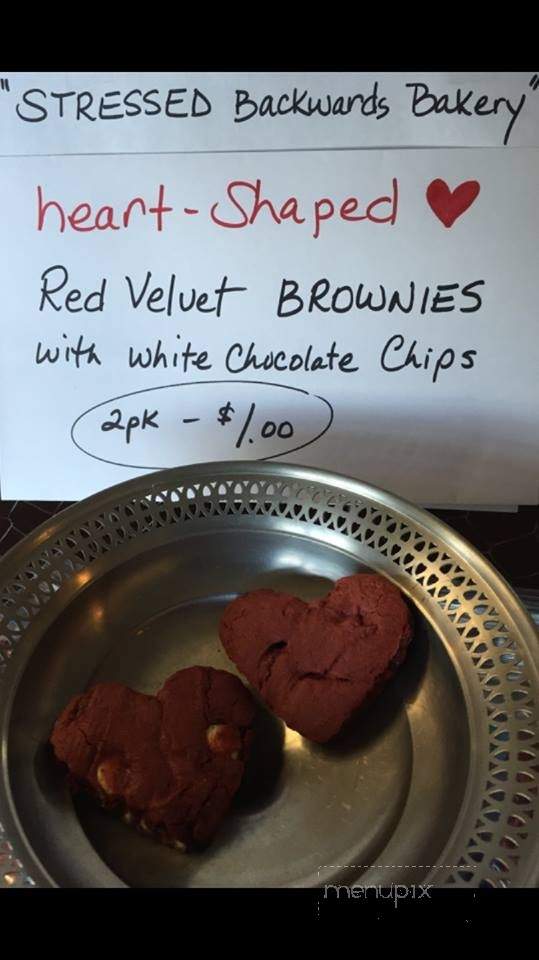 "STRESSED Backwards Bakery"
heart-Shaped ♥
Red Velvet BROWNIES
with white Chocolate Chips
2pk - $1.00
menupix